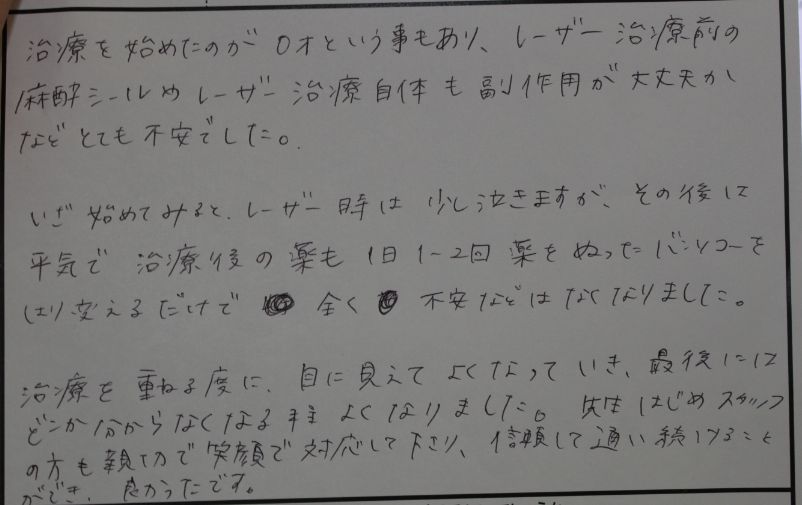 治療を始めたのが0才という事もあり、レーザー治療前の
麻酔シールやレーザー治療自体も副作用が大丈夫か
などとても不安でした。
いざ始めてみると、レーザー時は少し泣きますが、その後は
平気で治療後の薬も1日1~2回薬をぬったバンソコーを
はり変えるだけで 全く 不安などはなくなりました。
治療を重ねる度に、目に見えてよくなっていき、最後には
どこか分からなくなる程よくなりました。先生はじめスタッフ
の方も親切で笑顔で対応して下さり、信頼して通い続けること
ができ、良かったです。